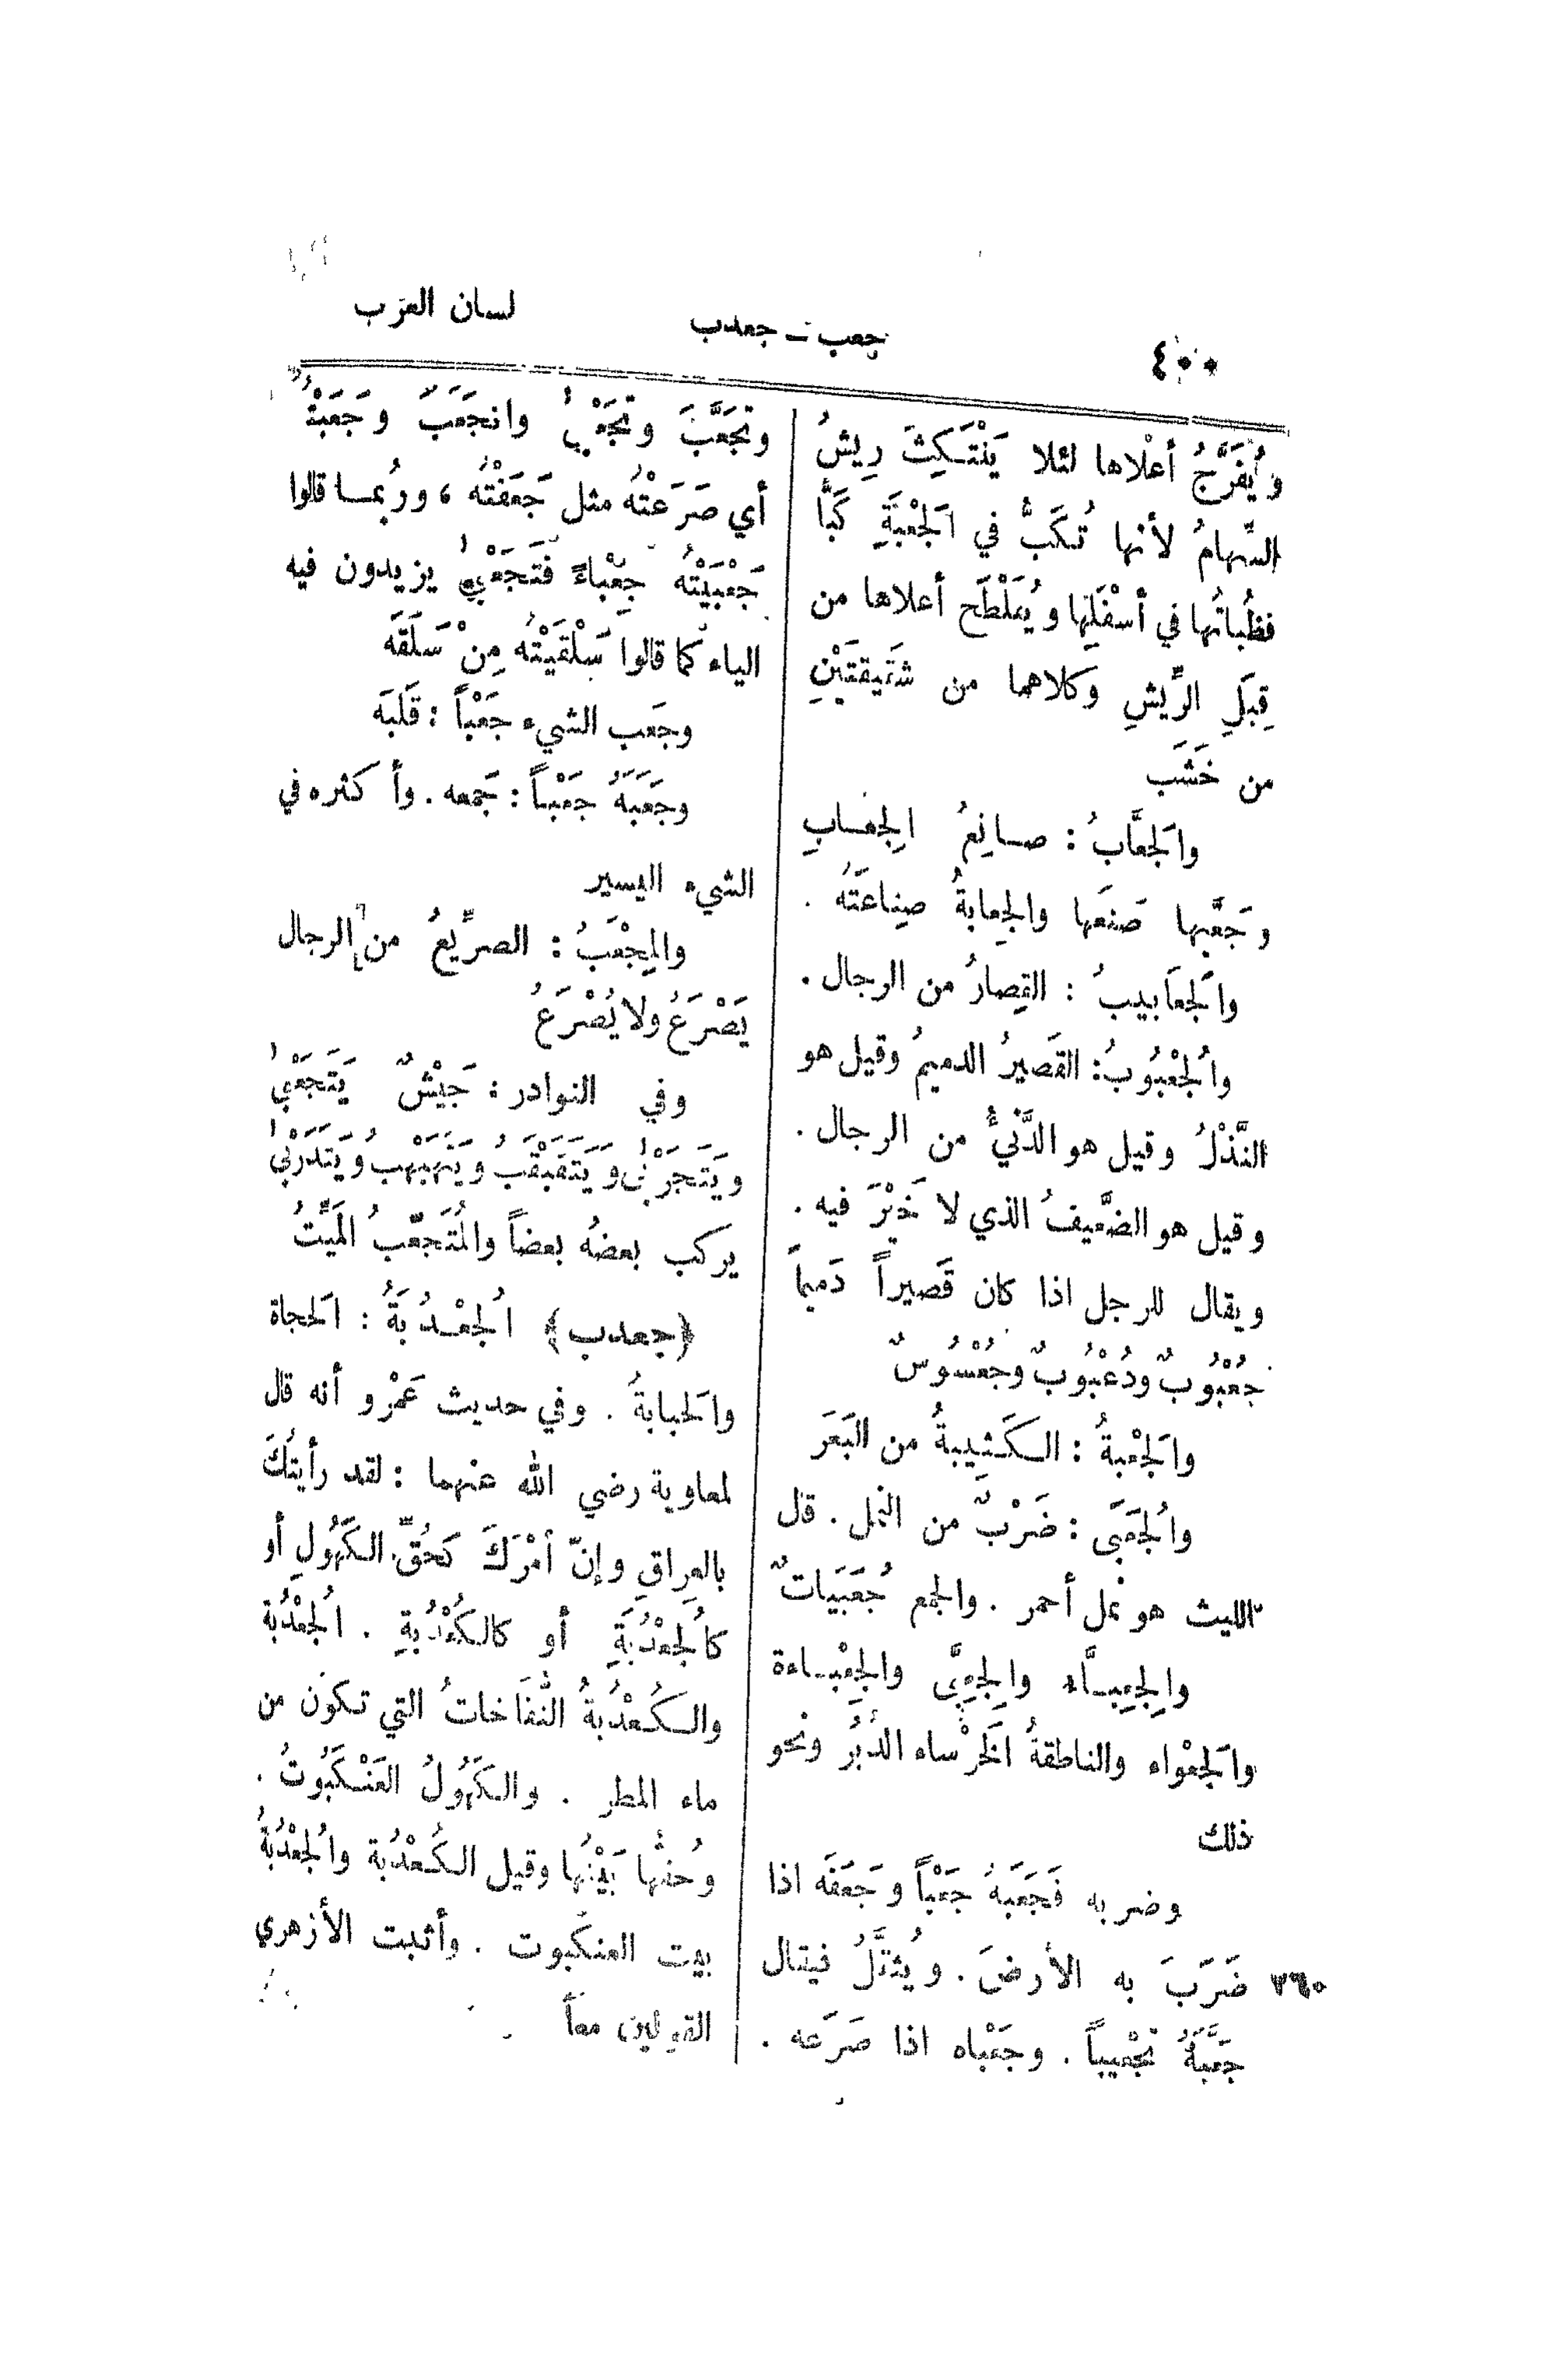 ٤٠٠
جعب – جعدب
لسان العرَب
وَيُفَرَّجُ أعْلاها لئلا يَنْتَكِثَ رِيشُ
السِّهامُ لأنها تُكَبُّ في الجَعْبَةِ كَبًّا
فظُباتُها في أسْفَلِها ويُفَلْطَح أعلاها من
قِبَلِ الرِّيشِ وكلاهما من شَقيقتَيْنِ
من خَشَب
والجَعَّابُ : صانِعُ الجِعابِ
وجَعَّبها صَنَعها والجِعابةُ صِناعَتُه .
والجَعَابيبُ : القِصارُ من الرجال .
والجُعْبُوبُ : القَصيرُ الدميمُ وقيل هو
النَّذْلُ وقيل هو الدَّنيُّ من الرجال .
وقيل هو الضَّعيفُ الذي لا خَيْرَ فيه .
ويقال للرجل اذا كان قَصيراً دَميماً
جُعْبُوبٌ ودُعْبُوبٌ وجُعْسُوسٌ
والجَعْبةُ : الكَثِيبةُ من البَعَر
والجُعَبَى : ضَرْبٌ من النمل . قال
الليث هو نمل أحمر . والجمع جُعَبَيَاتٌ
والجِعِبَّاء والجِعِبَّى والجِعْباءة
والجَعْواء والناطقةُ الخَرْساء الدُّبُر ونحو
ذلك
وضربه فَجَعَبَهُ جَعْباً وجَعَفَه اذا
٣٦٠ ضَرَبَ به الأرضَ . ويُثَقَّلُ فيقال
جَعَّبَهُ تَجْعيباً . وجَعْباه اذا صَرَعه .
وتَجَعَّبَ وتَجَعْبىٰ وانجَعَبَ وجَعَبْتُهُ
أي صَرَعْتُه مثل جَعَفْتُه ، وربما قالوا
جَعْبَيْتُه جِعْباءً فَتَجَعْبىٰ يزيدون فيه
الياء كما قالوا سَلْقَيْتُه مِنْ سَلَقَه
وجَعَب الشيء جَعْباً : قَلَبَه
وجَعَبَهُ جَعْباً : جمعه . وأكثره في
الشيء اليسير
والمِجْعَبُ : الصرِّيعُ من الرجال
يَصْرَعُ ولا يُصْرَعُ
وفي النوادر : جَيْشٌ يَتَجَعْبىٰ
ويَتَجَرْبىٰ ويَتَقَبْقَبُ ويَتَهَبْهَبُ ويَتَدَرْبىٰ
يركب بعضُه بعضاً والمُتَجَعِّبُ المَيِّتُ
﴿جعدب﴾ الجُعْدُبَةُ : الحَجاة
والحَبابةُ . وفي حديث عَمْرو أنه قال
لمعاوية رضي الله عنهما : لقد رأيتُكَ
بالعِراقِ وإنّ أمْرَكَ كَحُقِّ الكَهُولِ أو
كالجُعْدُبَةِ أو كالكُعْدُبةِ . الجُعْدُبة
والكُعْدُبةُ النُّفَاخاتُ التي تكون من
ماء المطر . والكَهُولُ العَنْكَبُوتُ .
وحُقُّها بَيْتُها وقيل الكُعْدُبة والجُعْدُبةُ
بيت العنكبوت . وأثبت الأزهري
القولين معاً